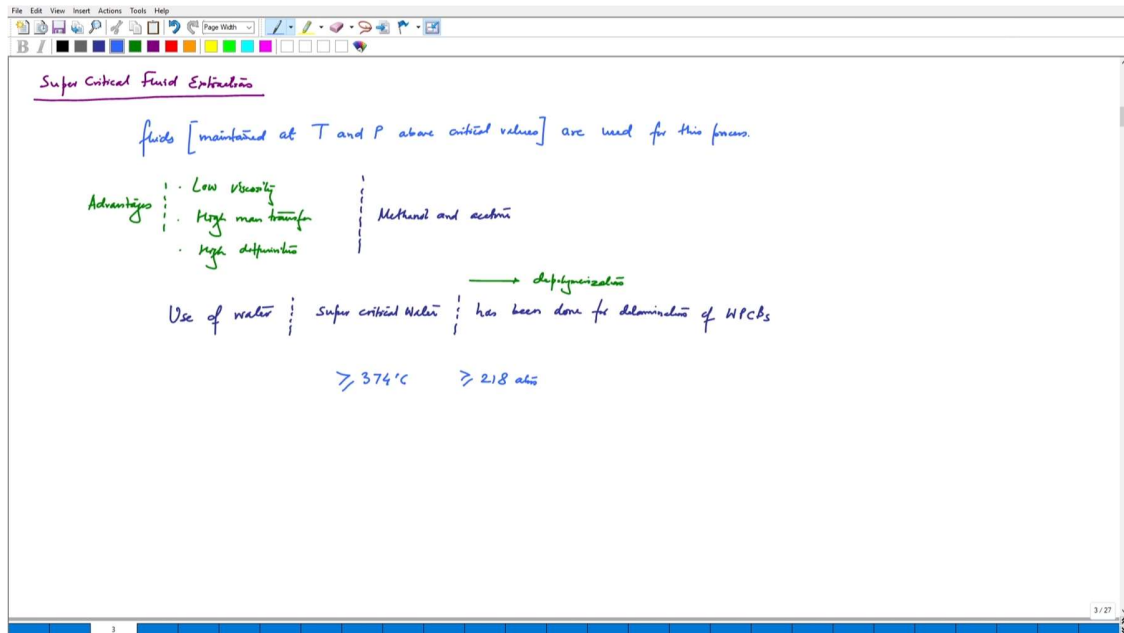 File Edit View Insert Actions Tools Help
Page Width
B I
Super Critical Fluid Extraction
fluids [maintained at T and P above critical values] are used for this process.
Advantages
· Low viscosity
· High mass transfer
· High diffusivities
Methanol and acetone
→ depolymerization
Use of water Super critical Water has been done for delamination of WPCBs
⩾ 374°C ⩾ 218 atm
3 / 27
3